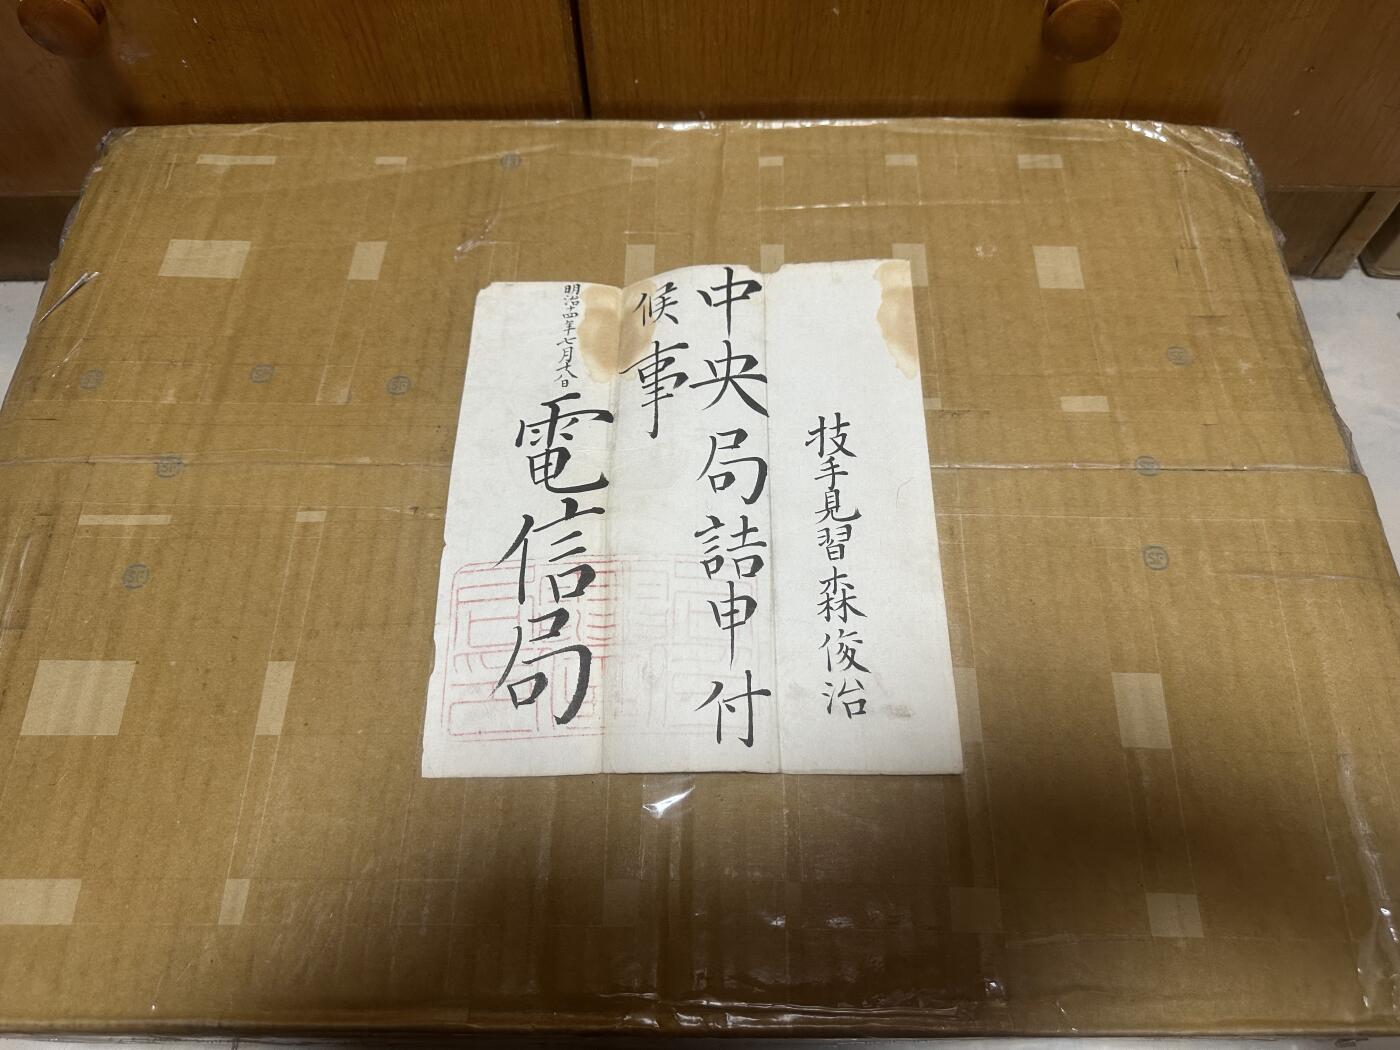 技手見習森俊治
中央局詰申付
候事
明治十四年七月十八日
電信局